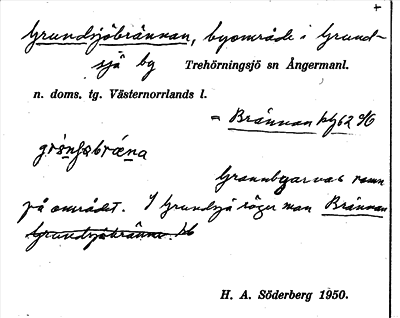 +
Grundsjöbrännan, byområde i Grund-
sjö by Trehörningsjö sn Ångermanl.
n. doms. tg. Västernorrlands l.
= Brännan
Grannbyarnas namn
på området. I Grundsjö säger man Brännan
H. A. Söderberg 1950.